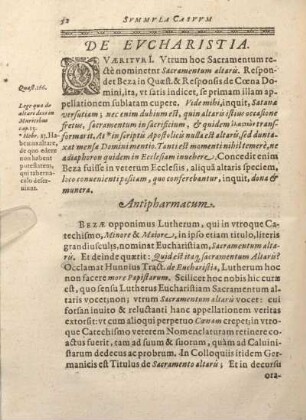 52 SVMMVLA CASVVM
DE EVCHARISTIA.
QVÆRITVR I. Vtrum hoc Sacramentum re-
ctè nominetur Sacramentum altaris. Respon-
det Beza in Quæst & Responsis de Cœna Do-
mini, ita, vt satis indicet, se primam illam ap-
pellationem sublatam cupere. Vide mihi, inquit, Satanæ
versutiam; nec enim dubium est, quin altaris istius occasione
fretus, sacramentum in sacrificium, & quidem inane transf-
formarit. At in scriptis Apostolicis nulla est altaris, sed dunta-
xat mensæ Domini mentio. Tanti est momenti nihil temerè, ne
adiaphoron quidem in Ecclesiam inuehere. Concedit enim
Beza fuisse in veterum Ecclesiis, aliquâ altaris speciem,
loco conuenienti positam, quo conferebantur, inquit, dona &
munera.
Quæst. 166.
Lege quæ de
altari dicta in
cap. 13.
* Hebr. 13. Ha-
bemus altare,
de quo edere
non habent
potestatem,
qui taberna-
culo deser-
uiunt.
Antipharmacum.
BEZÆ opponimus Lutherum, qui in vtroque Ca-
techismo, Minore & Maiore, in ipso etiam titulo, literis
grandiusculis, nominat Eucharistiam, Sacramentum alta-
ris. Et deinde quærit: Quid est itaq; sacramentum Altaris?
Occlamat Hunnius Tract. de Eucharistia, Lutherum hoc
non facere more Papistarum. Scilicet hoc nobis hîc curæ
est, quo sensu Lutherus Eucharistiam Sacramentum alta-
ris vocet; non; vtrum Sacramentum altaris vocet: cui
forsan inuito & reluctanti hanc appellationem veritas
extorsit: vt cum alioqui perpetuo Cœnam crepet; in vtroque
Catechismo veterem Nomenclaturam retinere co-
actus fuerit, tam ad suum & suorum, quàm ad Caluini-
starum dedecus ac probrum. In Colloquiis itidem Ger-
manicis est Titulus de Sacramento altaris; Et in decursu
ora-